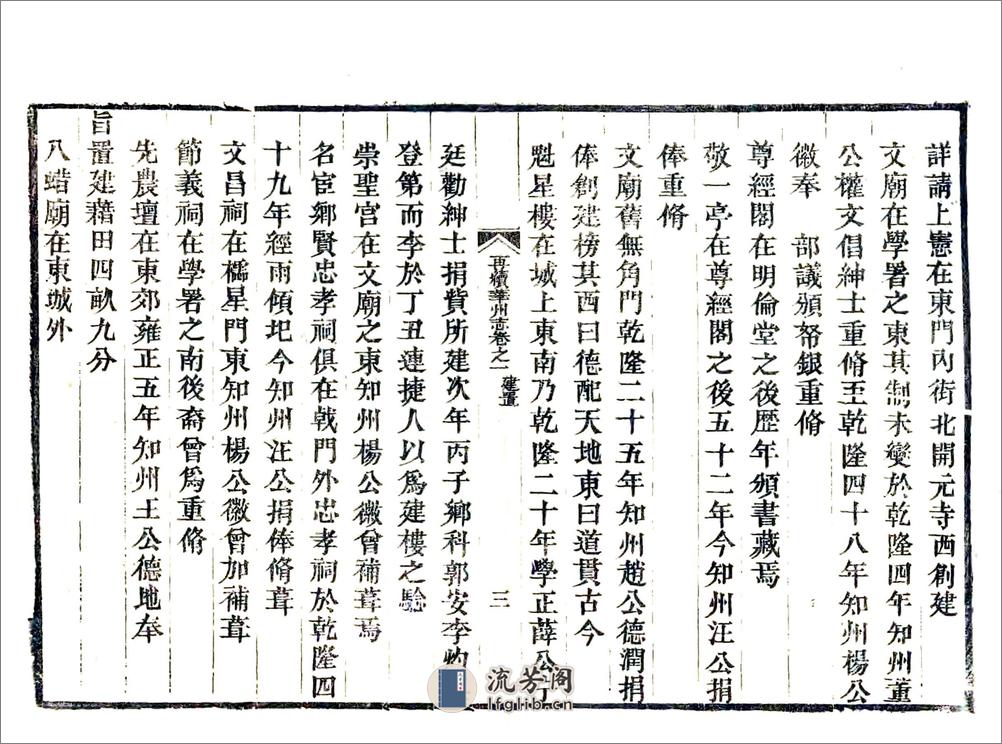 詳請上憲在東門內街北開元寺西創建
文廟在學署之東其制未變於乾隆四年知州董
公權文倡紳士重脩至乾隆四十八年知州楊公
徽奉 部議頒帑銀重脩
尊經閣在明倫堂之後歷年頒書藏焉
敬一亭在尊經閣之後五十二年今知州汪公捐
俸重脩
文廟舊無角門乾隆二十五年知州趙公德潤捐
俸創建榜其西曰德配天地東曰道貫古今
魁星樓在城上東南乃乾隆二十年學正薛公寧
再續華州志卷之一 建置 三
廷勸紳士捐貲所建次年丙子鄉科郭安李灼
登第而李於丁丑連捷人以爲建樓之驗
崇聖官在文廟之東知州楊公徽曾補葺焉
名宦鄉賢忠孝祠俱在戟門外忠孝祠於乾隆四
十九年經雨傾圮今知州汪公捐俸脩葺
文昌祠在櫺星門東知州楊公徽曾加補葺
節義祠在學署之南後裔曾爲重脩
先農壇在東郊雍正五年知州王公德地奉
旨置建藉田四畝九分
八蜡廟在東城外
流芳閣
lfglib.cn